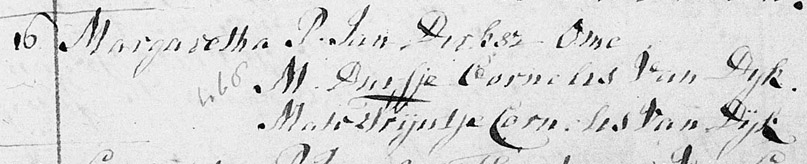 16 Margaretha P. Jan Dirksz Ome
M. Duifje Cornelis Van Dyk.
Mat Trijntje Cornelis Van Dijk